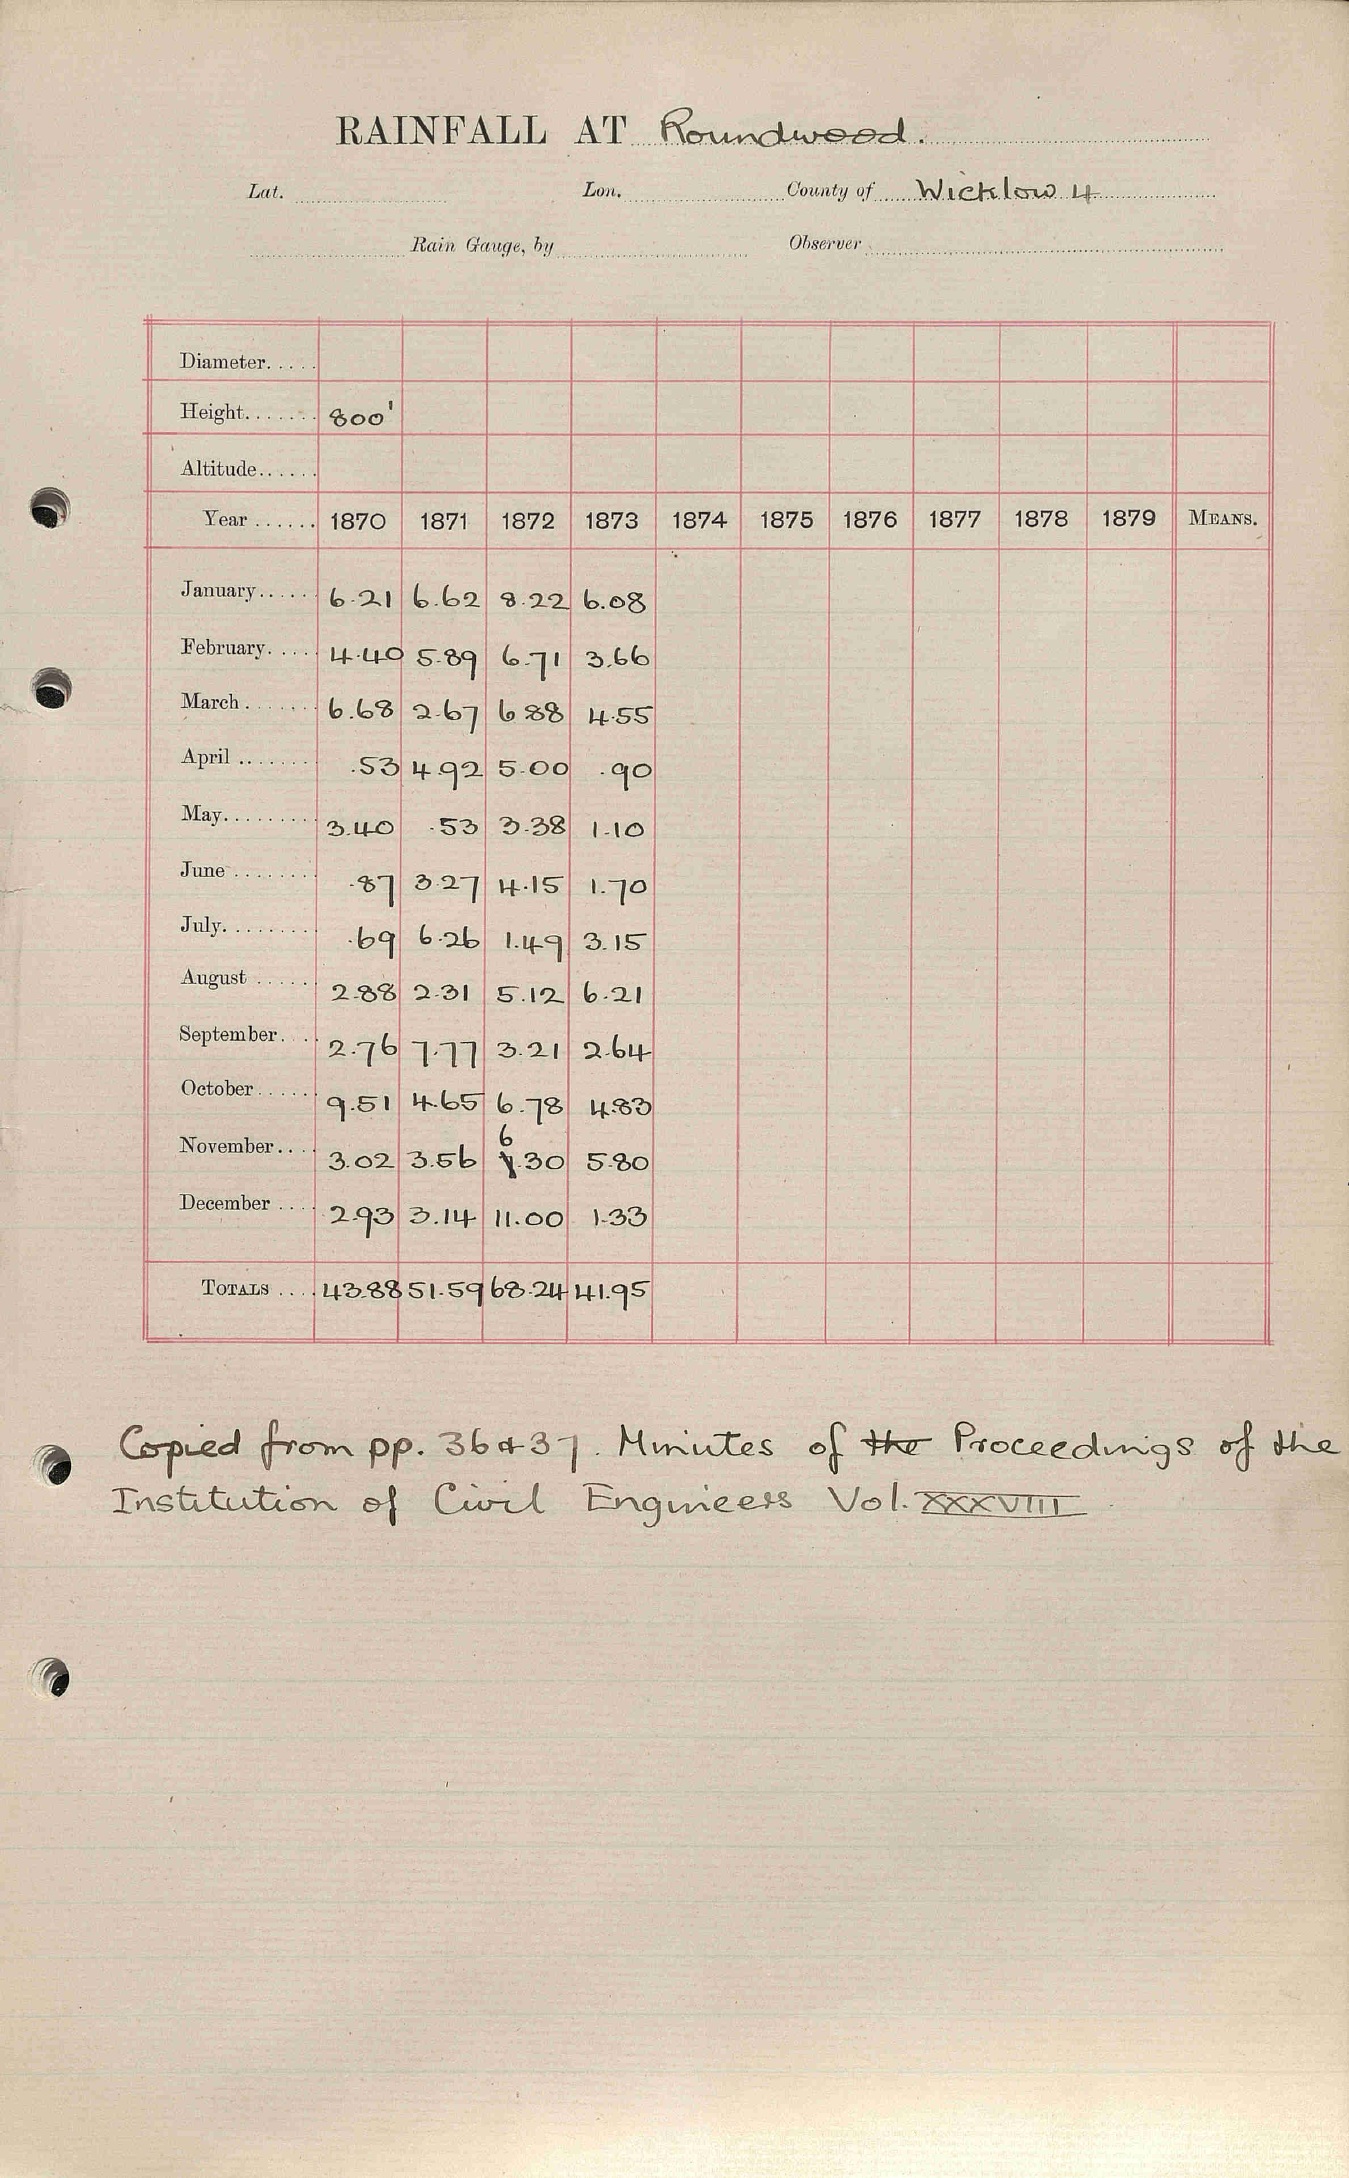 RAINFALL AT Roundwood.
Lat. Lon. County of Wicklow 4
Rain Gauge, by Observer
Diameter.....
Height....... 800'
Altitude......
Year ...... 1870 1871 1872 1873 1874 1875 1876 1877 1878 1879 MEANS.
January...... 6.21 6.62 8.22 6.08
February..... 4.40 5.89 6.71 3.66
March ....... 6.68 2.67 6.88 4.55
April ....... .53 4.92 5.00 .90
May......... 3.40 .53 3.38 1.10
June ........ .87 3.27 4.15 1.70
July......... .69 6.26 1.49 3.15
August ...... 2.88 2.31 5.12 6.21
September... 2.76 7.77 3.21 2.64
October...... 9.51 4.65 6.78 4.83
6
November.... 3.02 3.56 7.30 5.80
December .... 2.93 3.14 11.00 1.33
TOTALS .... 43.88 51.59 68.24 41.95
Copied from pp. 36 & 37. Minutes of the Proceedings of the
Institution of Civil Engineers Vol. XXXVIII